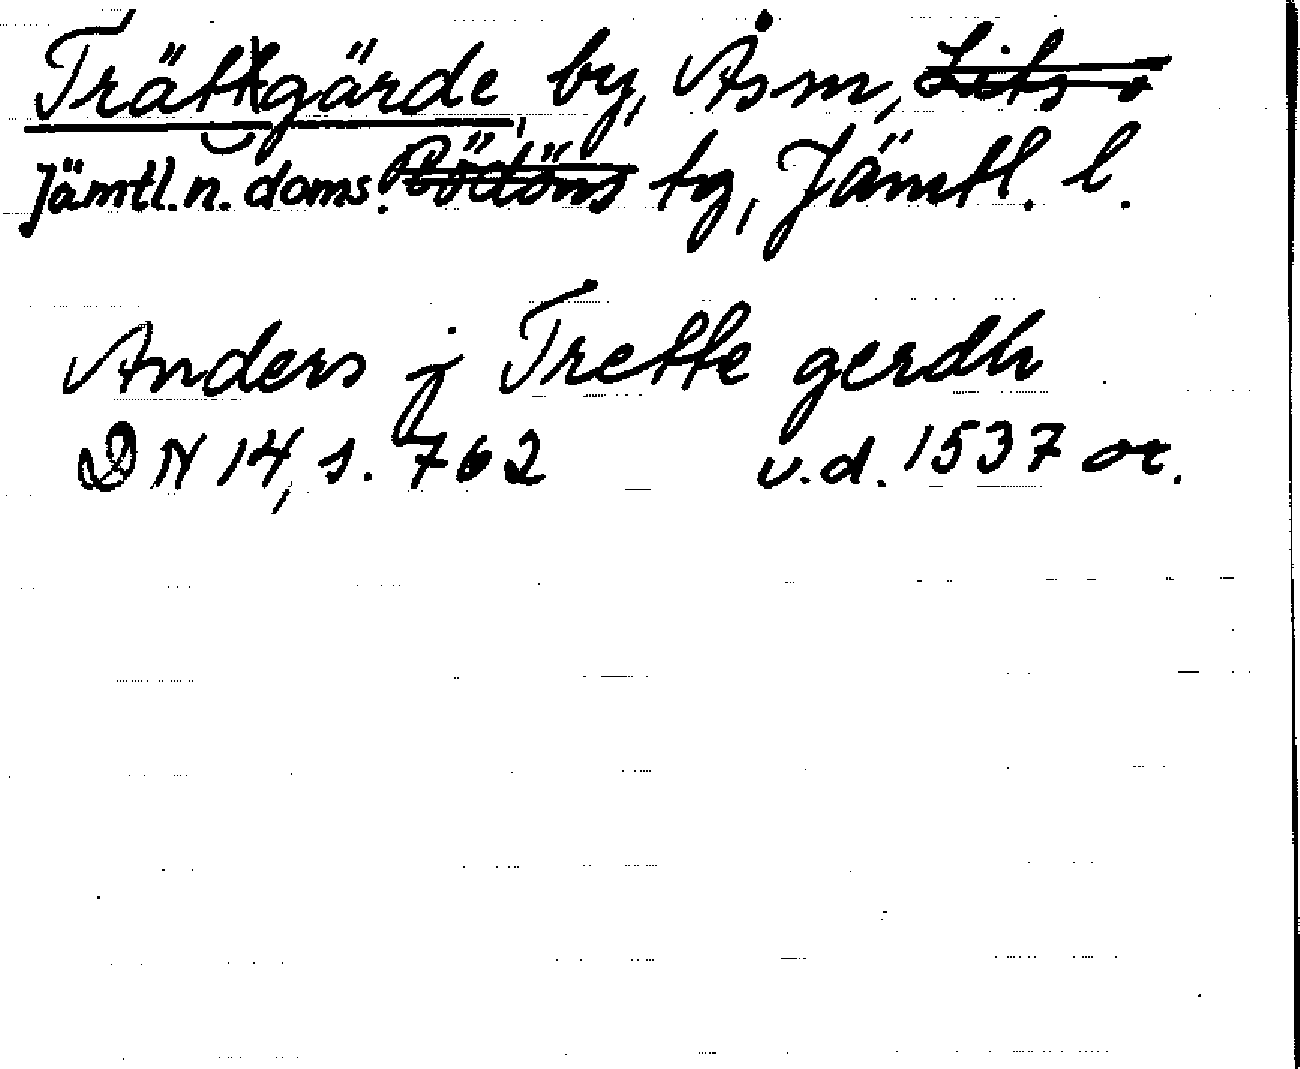 Trättgärde by, Ås sn, Lits o
Jämtl.n. doms. Rödöns tg, Jämtl. l.
Anders j Trette gerdh
DN 14, s. 762 v.d. 1537 or.